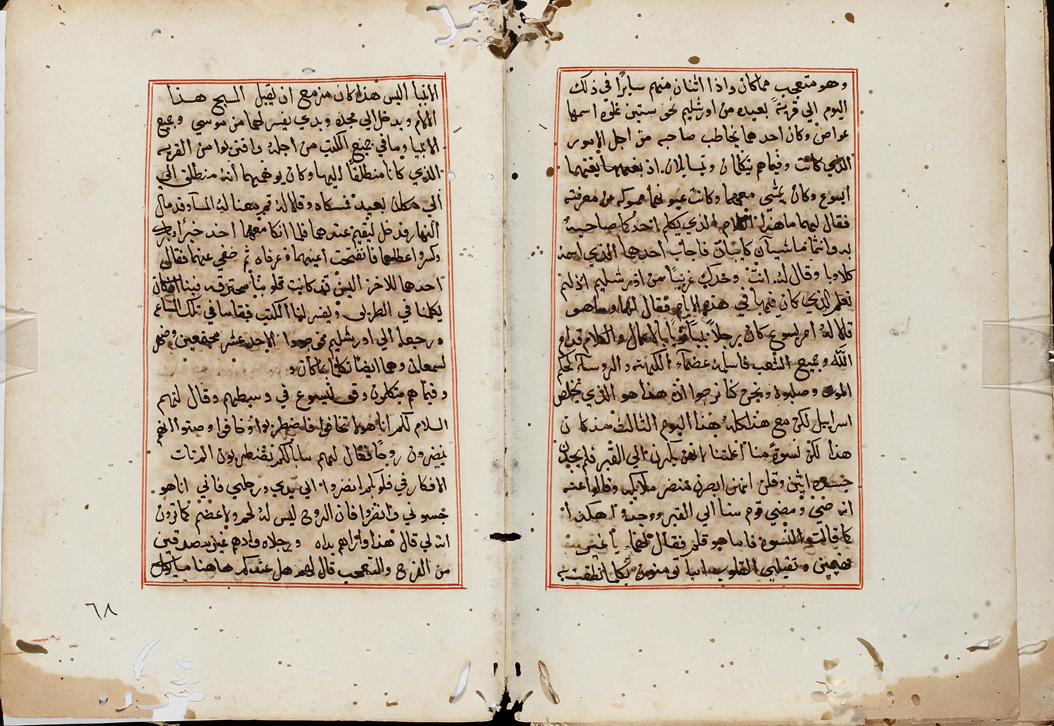 وهو متعجب مما كان واذا اثنان منهم سايرًا في ذلك
اليوم الي قرية بعيده من اورشليم نحو ستين غلوه اسمها
عواص وكان احدهما يخاطب صاحبه من اجل الامور
الذي كانت وفيما هم يتكلمان ويتسايلان اذ بلغهما
ايسوع وكان يمشي معهما وكانت عيونهما ممسوكه عن معرفته
فقال لهما ما هذا الكلام الذي يكلم احدكما صاحبه
به وانتما ماشيان كايبان فاجاب احدهما الذي اسمه
كلاوبا وقال له انت وحدك غريبًا من اورشليم اذ لم
تعلم الذي كان فيها في هذه الايام فقال لهما وما هو
قالا له امر يسوع كان رجلاً نبيًا قويًا بالاعمال والكلام قدام
الله وجميع الشعب فاسلمه عظماء الكهنه والروسا لحكم
الموت وصلبوه ونحن كنا نرجوا الان هذا هو الذي يخلص
اسراييل لكن مع هذا كله هذا اليوم الثالث منذ كان
هذا لكن نسوة منا اعلمننا انهن بكرن الي القبر فلم يجدن
جسده اتين وقلن انهن ابصرن منظر ملايكه وقالوا عنه
انه حي ومضي قوم منا الي القبر ووجدوا هكذا
كما قالت النسوه فاما هو فلم فقال لهما يا غير
فهمين وثقيلي القلوب اما تومنون بكل ما نطقت به
الانبيا اليس هذا كان مزمع ان يقبل المسيح هذا
الالام ويدخل الي مجده وبدي يفسر لهما من موسي وجميع
الانبيا وما في جميع الكتب من اجله واقتربوا من القريه
الذي كانا منطلقًا اليها وكان يوهمهما انه منطلق الي
الي مكان بعيد فمسكاه وقالا له قم معنا لان المسا قد مال
النهار فدخل ليقيم عندهما فلما اتكا معهما اخذ خبزًا وبارك
وكسر واعطاهما فانفتحت اعينهما وعرفاه ثم خفي عنهما فقال
احدهما للاخر اليس قد كانت قلوبنا محترقه فينا اذ كان
يكلمنا في الطريق ويفسر لنا الكتب فقاما في تلك الساعه
ورجعا الي اورشليم فوجدوا الاحد عشر مجتمعين
لسمعان وهما ايضًا تكلما بما كان
وفيما هم يتكلمون وقف ليسوع في وسطهم وقال لهم
السلام لكم انا هو لا تخافوا فاضطربوا وخافوا وظنوا انهم
ينضرون روحًا فقال لهم ما بالكم تضطربون ولم تات
الافكار في قلوبكم انضروا الي يدي ورجلي فاني انا هو
جسوني وانظروا فان الروح ليس له لحم ولا عضم كما ترون
انه لي قال هذا واراهم يداه ورجلاه واذ هم غير مصدقين
من الفرح والتعجب قال لهم هل عندكم هاهنا ما يوكل
٦٨